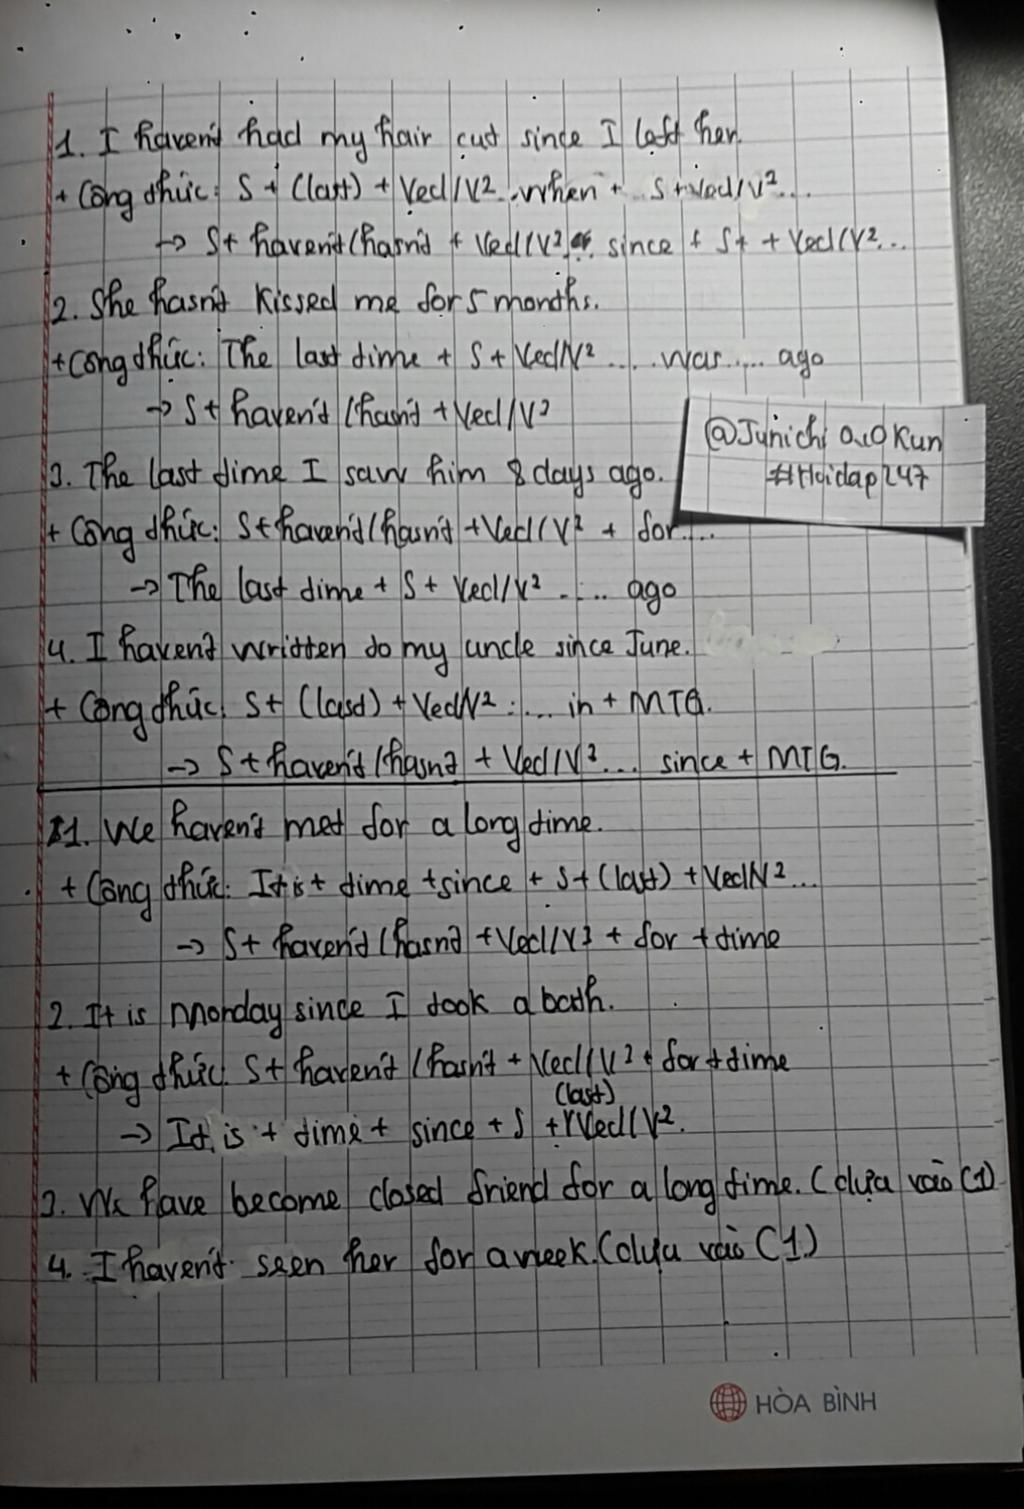 1. I haven't had my hair cut since I left her.
+ Công thức: S + (last) + Ved/V2 ..when + ... S + Ved/V2...
→ S + haven't/hasn't + Ved/V3 since + S + + Ved/V2...
2. She hasn't kissed me for 5 months.
+ Công thức: The last time + S + Ved/V2 .... was .... ago
→ S + haven't/hasn't + Ved/V3
@Junichi OuO Kun
#Hoidap247
3. The last time I saw him 8 days ago.
+ Công thức: S + haven't/hasn't + Ved/V2 + for....
→ The last time + S + Ved/V2 ..... ago
4. I haven't written to my uncle since June.
+ Công thức: S + (last) + Ved/V2 .... in + MTG.
→ S + haven't/hasn't + Ved/V3... since + MTG.
1. We haven't met for a long time.
+ Công thức: It is + time + since + S + (last) + Ved/V2...
→ S + haven't/hasn't + Ved/V3 + for + time
2. It is Monday since I took a bath.
+ Công thức: S + haven't/hasn't + Ved/V2 + for + time
(last)
→ It is + time + since + S + Ved/V2.
3. We have become closed friend for a long time. (dựa vào C1)
4. I haven't seen her for a week. (dựa vào C1)
HÒA BÌNH